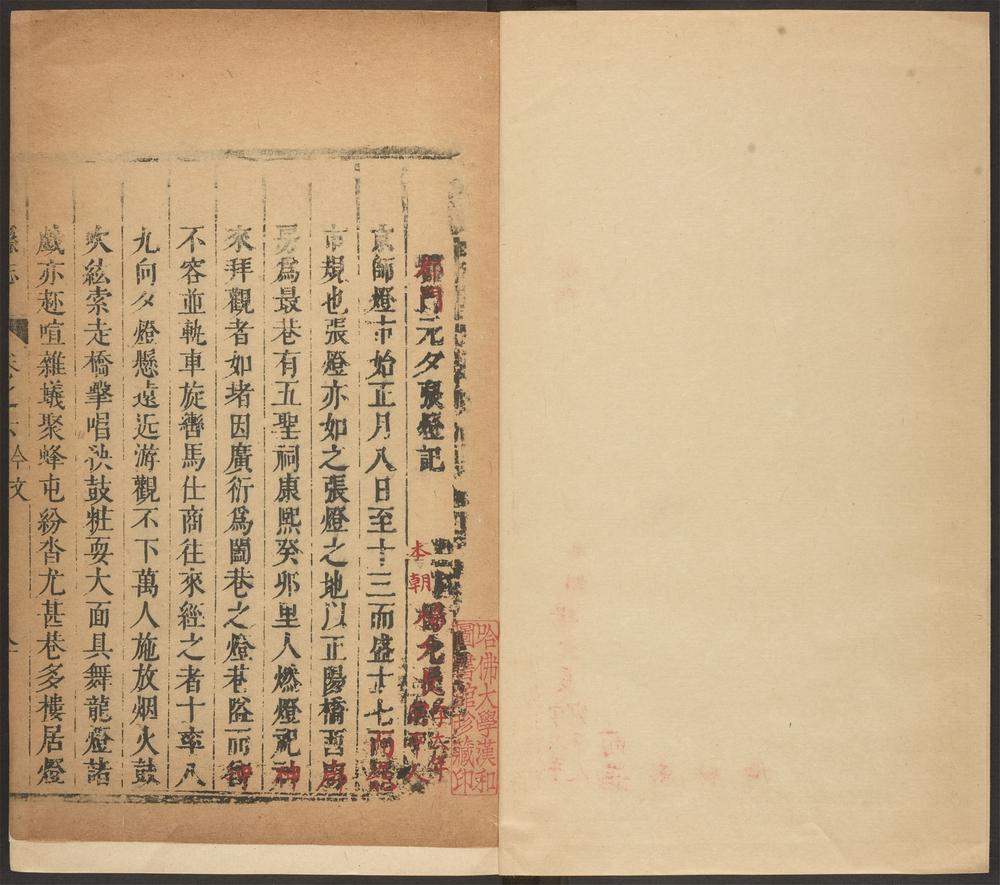 都門元夕張燈記
本朝
京師燈市始正月八日至十三而盛十七而
市規也張燈亦如之張燈之地以正陽橋西廊
房爲最巷有五聖祠康熙癸卯里人燃燈祀神
來拜觀者如堵因廣衍爲闔巷之燈巷隘而衝
不容並軌車旋轡馬仕商往來經之者十率八
九向夕燈懸遠近游觀不下萬人施放烟火鼓
吹絃索走橋擊唱秧鼓粧耍大面具舞龍燈諸
戲亦趂喧雜蟻聚蜂屯紛沓尤甚巷多樓居燈
今文
哈佛大學漢和
圖書館珍藏印